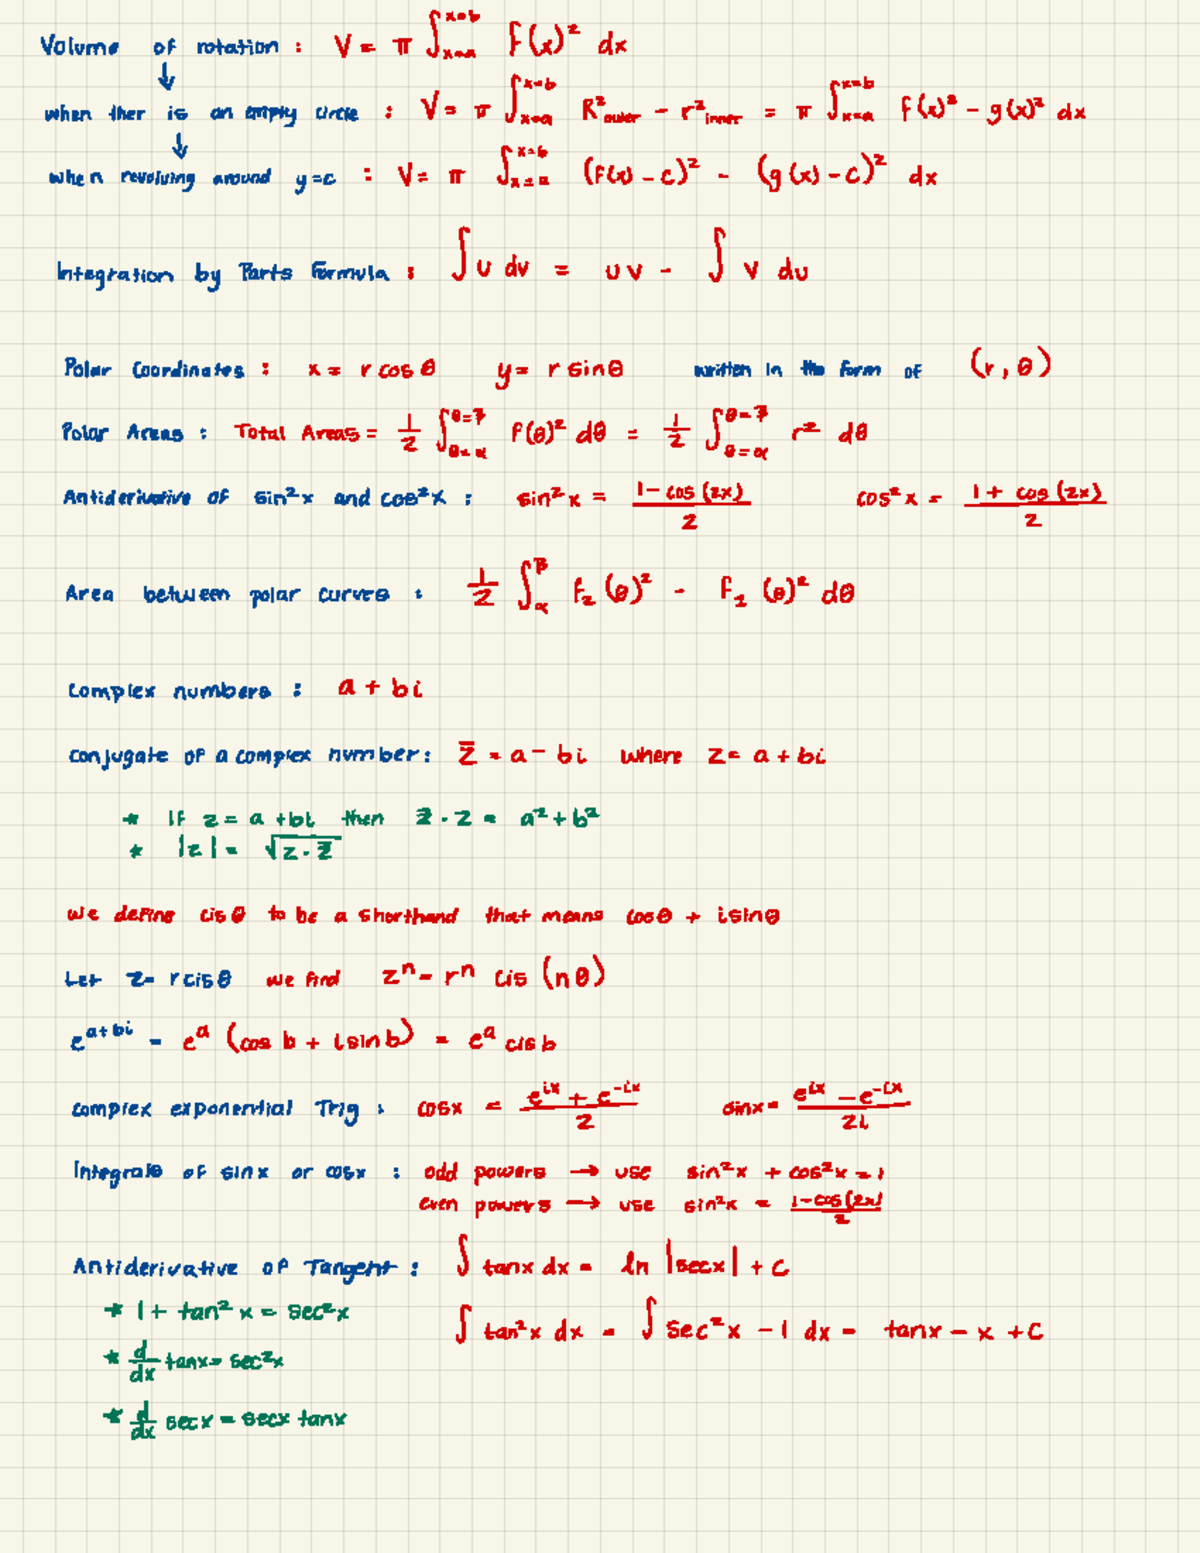 Volume of rotation : V = π ∫_{x=a}^{x=b} f(x)² dx
↓
when ther is an empty circle : V = π ∫_{x=a}^{x=b} R²_outer − r²_inner = π ∫_{x=a}^{x=b} f(x)² − g(x)² dx
↓
when revolving around y=c : V = π ∫_{x=a}^{x=b} (f(x) − c)² − (g(x) − c)² dx
Integration by Parts Formula : ∫ u dv = uv − ∫ v du
Polar Coordinates : x = r cos θ y = r sin θ written in the form of (r, θ)
Polar Areas : Total Areas = 1/2 ∫_{θ=α}^{θ=7} f(θ)² dθ = 1/2 ∫_{θ=α}^{θ=7} r² dθ
Antiderivative of sin²x and cos²x : sin²x = (1 − cos (2x))/2 cos²x = (1 + cos (2x))/2
Area between polar curves : 1/2 ∫_α^β f₂ (θ)² − f₁ (θ)² dθ
complex numbers : a + bi
conjugate of a complex number : z̅ = a − bi where z = a + bi
* If z = a + bi then z̅ · z = a² + b²
* |z| = √(z · z̅)
we define cis θ to be a shorthand that means cosθ + isinθ
Let z = r cis θ we find zⁿ = rⁿ cis (nθ)
e^{a+bi} = e^a (cos b + isin b) = e^a cis b
complex exponential Trig : cosx = (e^{ix} + e^{-ix})/2 sinx = (e^{ix} − e^{-ix})/2i
Integrals of sinx or cosx : odd powers → use sin²x + cos²x = 1
even powers → use sin²x = (1−cos(2x))/2
Antiderivative of Tangent : ∫ tanx dx = ln |secx| + C
* 1 + tan² x = sec²x
∫ tan²x dx = ∫ sec²x − 1 dx = tanx − x + C
* d/dx tanx = sec²x
* d/dx secx = secx tanx